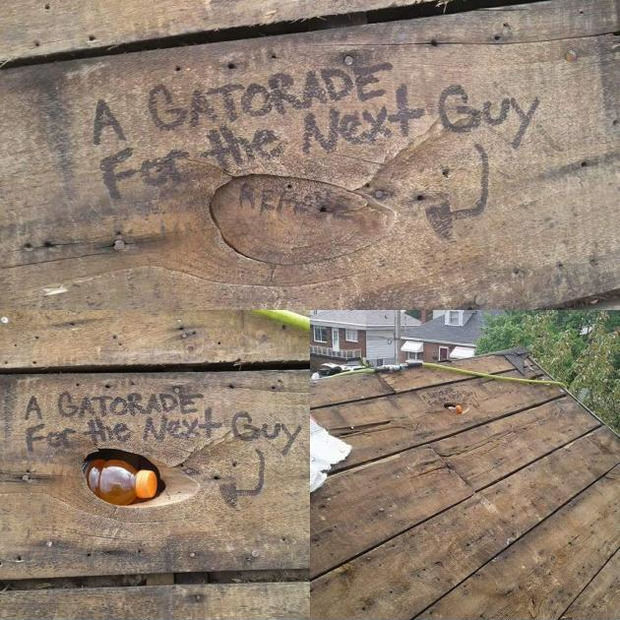 A GATORADE
For the Next Guy
REMOVE
A GATORADE
For the Next Guy